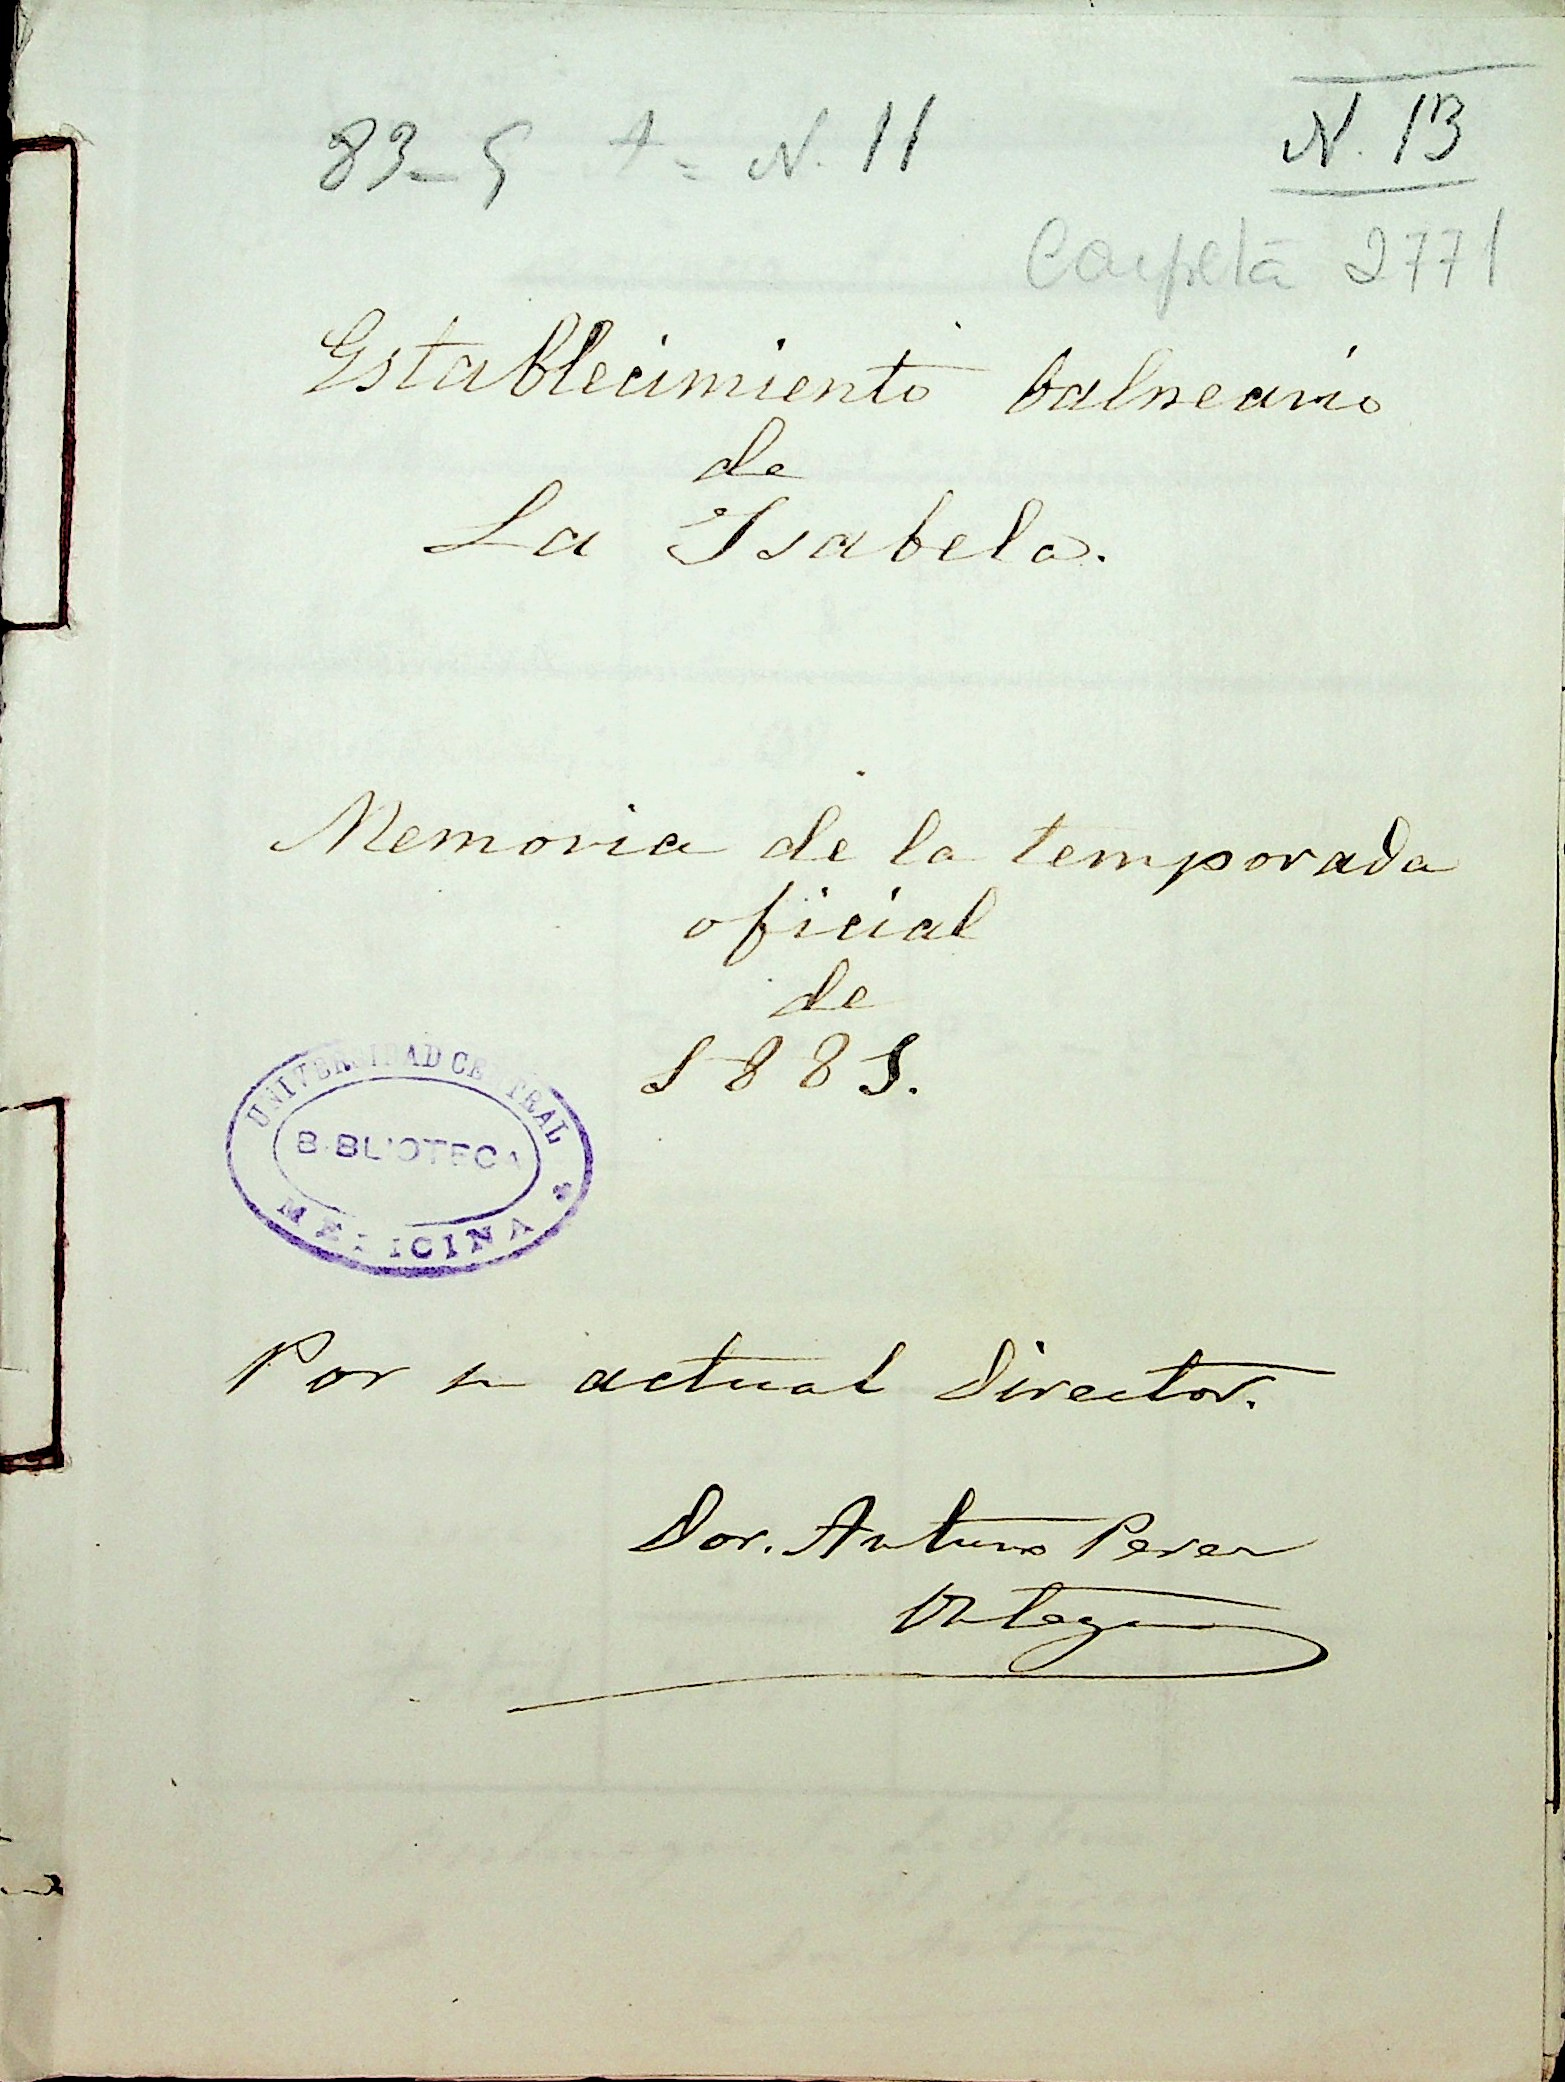 83-5 A = N. 11
N. 13
Carpeta 2771
Establecimiento balneario
de
La Isabela.
Memoria de la temporada
oficial
de
1881.
UNIVERSIDAD CENTRAL
BIBLIOTECA
MEDICINA
Por su actual Director.
Dor. Arturo Perez
Ortega